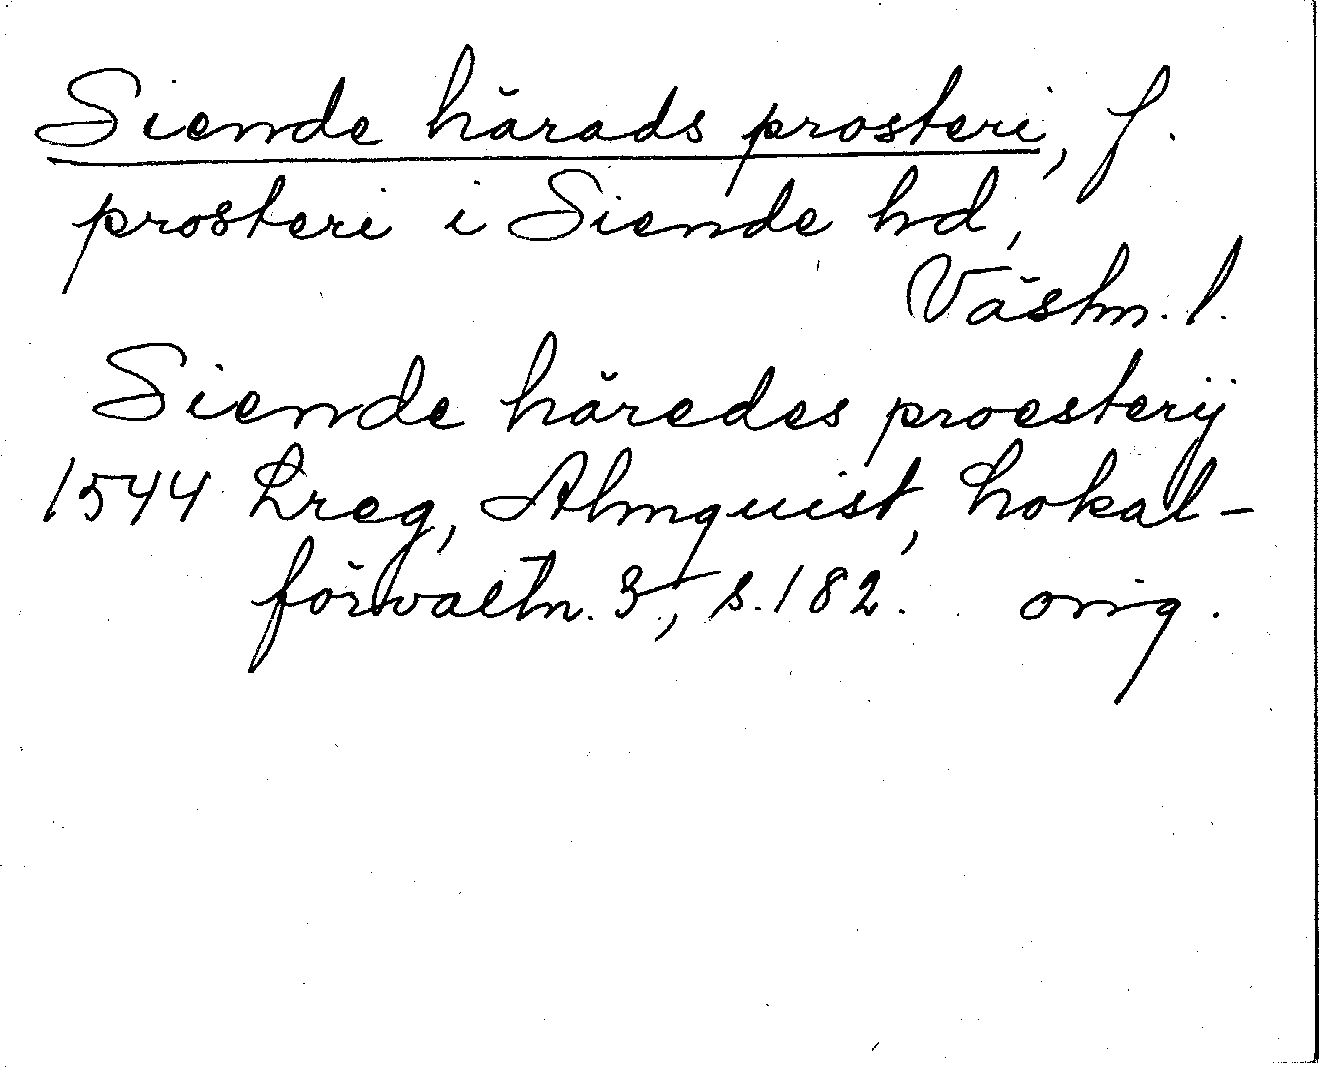 Siende härads prosteri, f.
prosteri i Siende hd,
Västm. l.
Siende häredes proesterij
1544 Lreg, Almquist, Lokal-
förvaltn. 3, s. 182. orig.